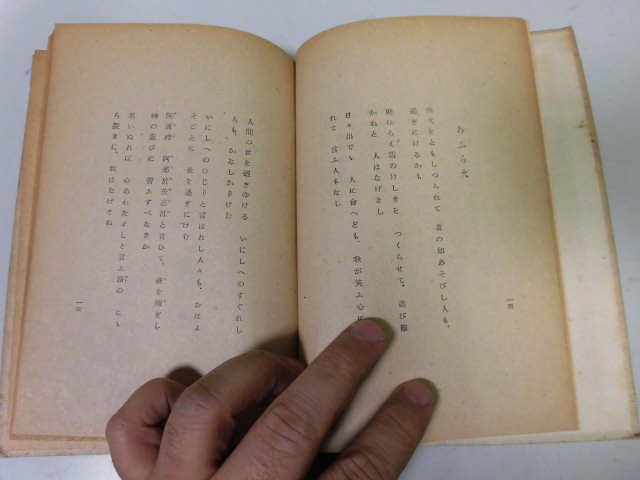 あぶら火
油火をともしつらねて 晝の如あそびし人も、
過ぎにけるかも
庭ひろく 雪のけしきを つくらせて、遊び
かねと 人はなげきし
日々出でゝ 人に會へども、我が笑ふ心に
れて 言ふ人もなし
一四
人間の世を過ぎゆける いにしへのすぐれし
人も、かなしかりけむ
いにしへのひじりと言はれし人々も、おほよ
そごとに 世を過ぎにけむ
阿波禮 阿那於茂志呂と言ひて、夜を積ぎし
神の遊びに 習ふすべなきか
老いぬれば 心あわたゞしと言ふ語の こゝ
ろ深きに、我はなげきぬ
一五